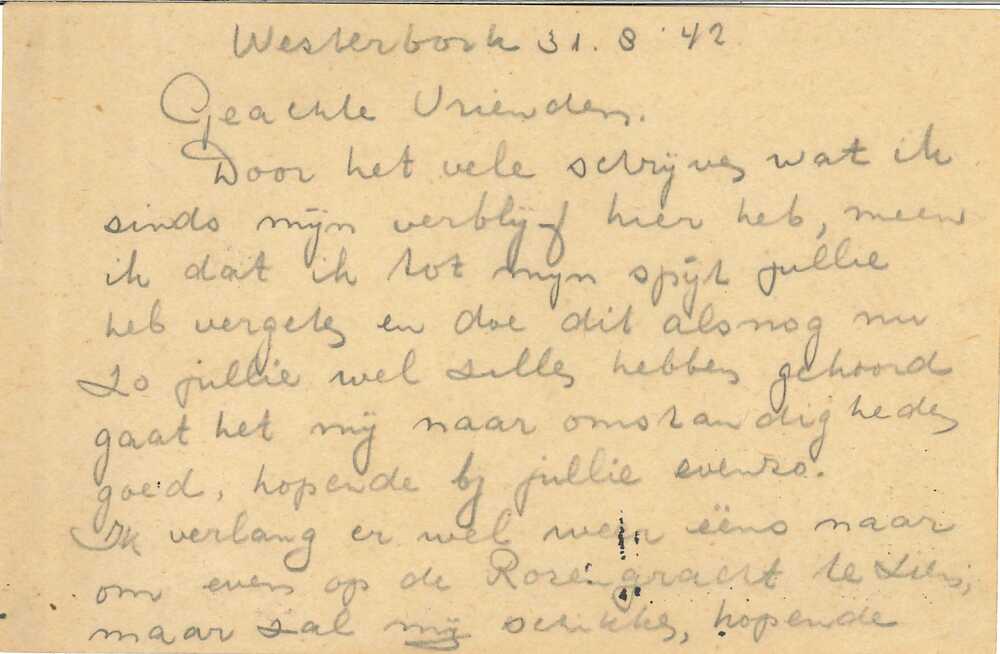 Westerbork 31.8.'42
Geachte Vrienden.
Door het vele schrijven wat ik
sinds mijn verblijf hier heb, meen
ik dat ik tot mijn spijt jullie
heb vergeten en doe dit alsnog nu
Zo jullie wel zullen hebben gehoord
gaat het mij naar omstandigheden
goed, hopende bij jullie evenzo.
Ik verlang er wel weer ééns naar
om even op de Rozengracht te zien,
maar zal mij schikken, hopende